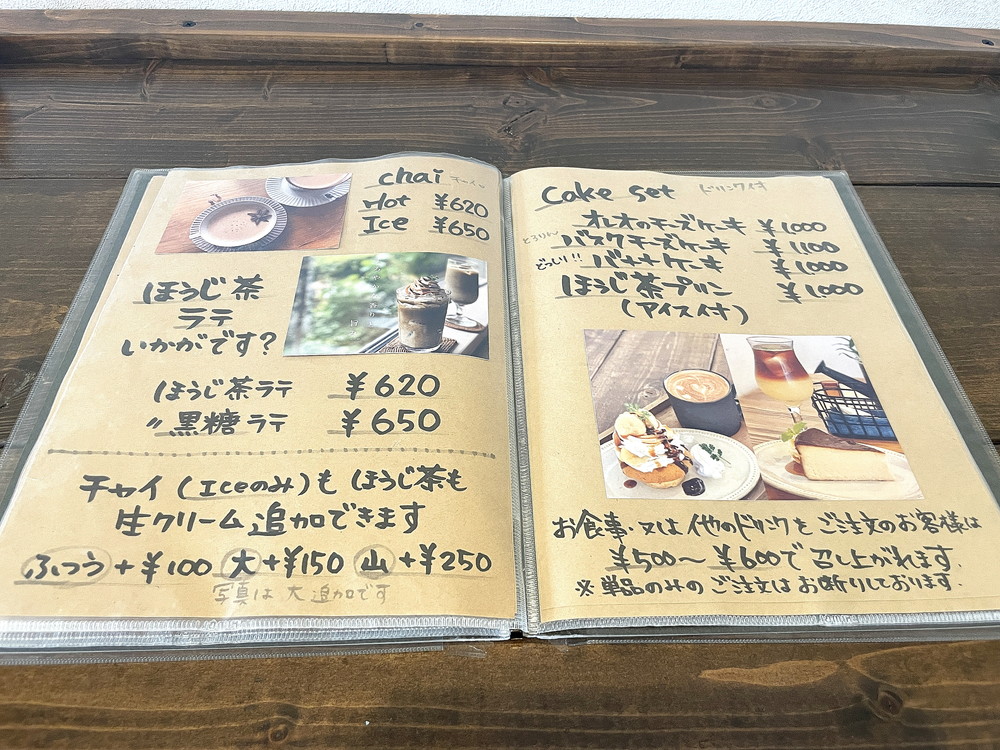 chai チャイ
Hot ¥620
Ice ¥650
ほうじ茶
ラテ
いかがです?
ほうじ茶ラテ ¥620
〃黒糖ラテ ¥650
チャイ(Iceのみ)も ほうじ茶も
生クリーム追加できます
ふつう+¥100 大+¥150 山+¥250
写真は 大 追加です
Cake set ドリンク付
オレオのチーズケーキ ¥1000
とろりん バスクチーズケーキ ¥1100
どっしり!! バナナケーキ ¥1000
ほうじ茶プリン ¥1,000
(アイス付)
お食事・又は他のドリンクをご注文のお客様は
¥500〜¥600で召し上がれます.
※単品のみのご注文はお断りしております.